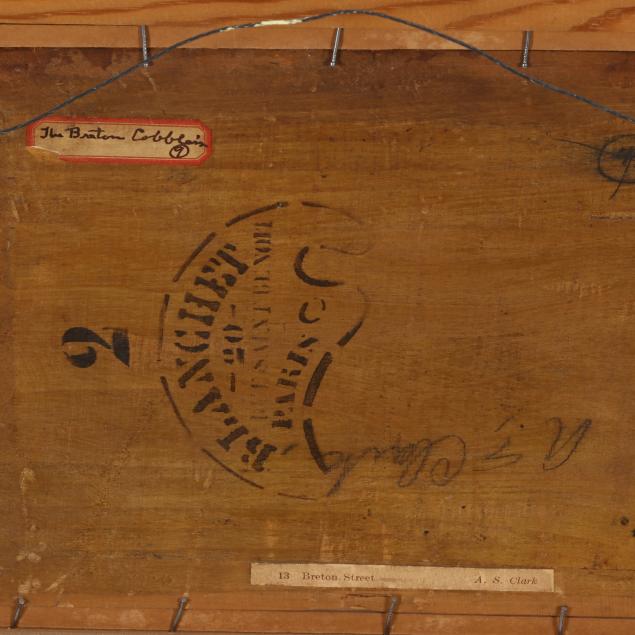 The Breton Cobblers
9
2
BLANCHET
20
RUE SAINT BENOIT
PARIS
A. S. Clark
13 Breton Street A. S. Clark